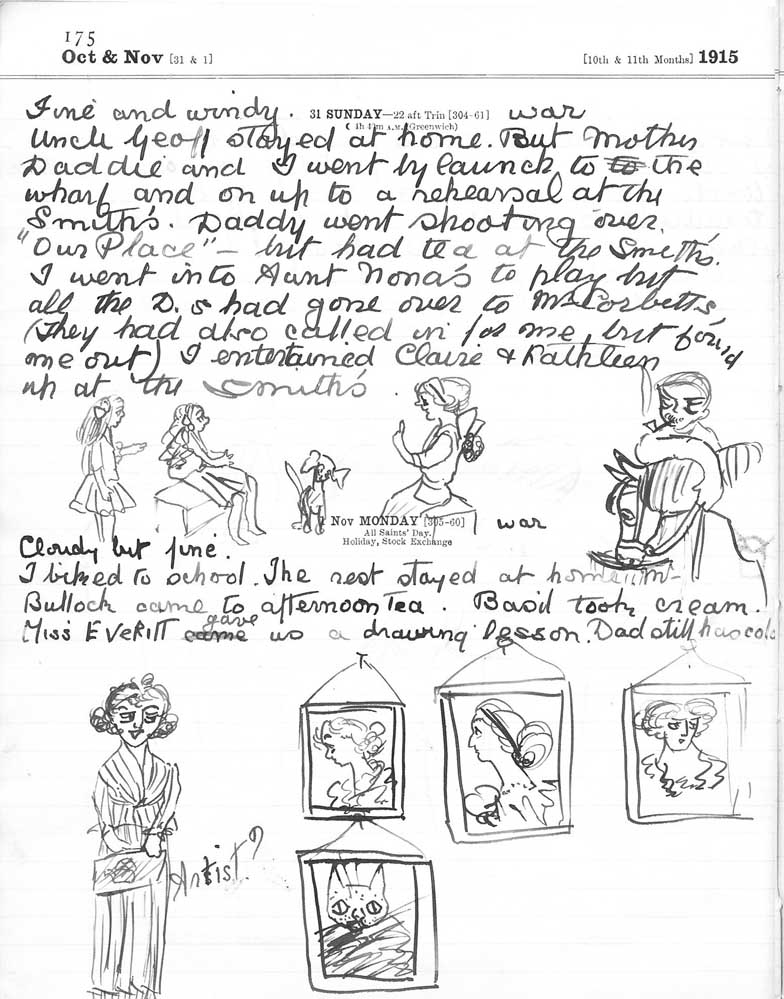 175
Oct & Nov [31 & 1] [10th & 11th Months] 1915
Fine and windy. 31 SUNDAY—22 aft Trin [304-61] war
Uncle Geoff stayed at home. But Mother
Daddie and I went by launch to to the
wharf and on up to a rehearsal at the
Smith's. Daddy went shooting over
"Our Place" – but had tea at the Smith's.
I went into Aunt Nona's to play but
all the D.s had gone over to Mrs Corbett's,
(They had also called in for me, but found
me out) I entertained Claire & Kathleen
up at the Smith's.
Nov MONDAY [305-60] war
All Saints' Day.
Holiday, Stock Exchange
Cloudy but fine.
I biked to school. The rest stayed at home. Mr
Bullock came to afternoon Tea. Basil took cream.
Miss EVERITT came gave us a drawing lesson. Dad still has cold
Artist?